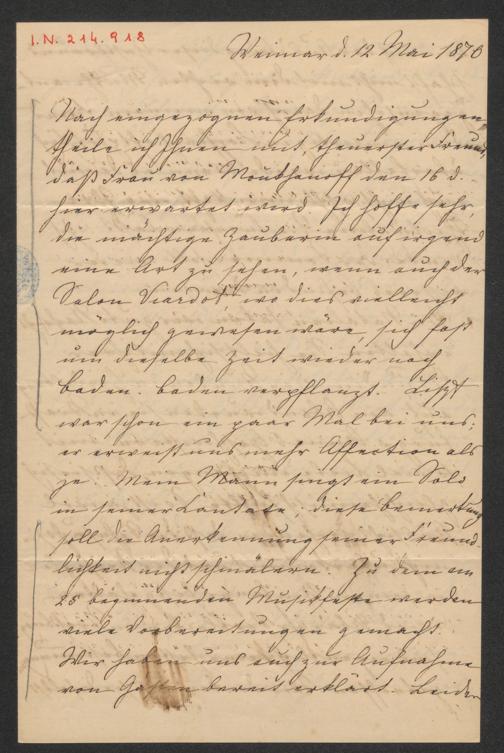 I.N. 214.918
Weimar d. 12 Mai 1870
Nach eingezognen Erkundigungen
theile ich Ihnen mit, theuerster Freund,
daß Frau von Moukhanoff den 16 d.
hier erwartet wird. Ich hoffe sehr,
die mächtige Zauberin auf irgend
eine Art zu sehen, wenn auch der
Salon Viardot, wo dies vielleicht
möglich gewesen wäre, sich fast
um dieselbe Zeit wieder nach
Baden-Baden verpflanzt. Liszt
war schon ein paar Mal bei uns;
er erweist uns mehr Affection als
je. Mein Mann singt ein Solo
in seiner Cantate; diese Bemerkung
soll die Anerkennung seiner Freund-
lichkeit nicht schmälern. Zu dem am
25 beginnenden Musikfeste werden
viele Vorbereitungen gemacht.
Wir haben uns auch zur Aufnahme
von Gästen bereit erklärt. Leider